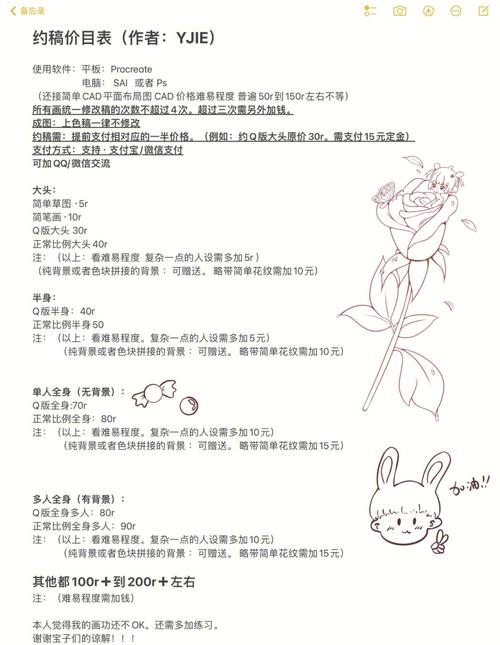 备忘录
约稿价目表（作者：YJIE）
使用软件：平板：Procreate
电脑： SAI 或者 Ps
（还接简单CAD平面布局图 CAD 价格难易程度 普遍50r到150r左右不等）
所有画统一修改稿的次数不超过4次。超过三次需另外加钱。
成图：上色稿一律不修改
约稿需：提前支付相对应的一半价格。（例如：约Q版大头原价30r。需支付15元定金）
支付方式：支持 · 支付宝/微信支付
可加QQ/微信交流
大头：
简单草图 ·5r
简笔画 ·10r
Q版大头 30r
正常比例大头40r
注：（以上：看难易程度 复杂一点的人设需多加5r ）
（纯背景或者色块拼接的背景 ：可赠送。 略带简单花纹需加10元）
半身：
Q版半身：40r
正常比例半身50
注： （以上：看难易程度。复杂一点的人设需多加5元）
（纯背景或者色块拼接的背景 ：可赠送。 略带简单花纹需加10元）
单人全身（无背景）：
Q版全身:70r
正常比例全身：80r
注： （以上：看难易程度。复杂一点的人设需多加10元）
（纯背景或者色块拼接的背景 ：可赠送。 略带简单花纹需加15元）
加油!!
多人全身（有背景）：
Q版全身多人：80r
正常比例全身多人：90r
注： （以上：看难易程度。复杂一点的人设需多加10元）
（纯背景或者色块拼接的背景 ：可赠送。 略带简单花纹需加15元）
其他都100r➕到200r➕左右
注：（难易程度需加钱）
本人觉得我的画功还不OK。还需多加练习。
谢谢宝子们的谅解！！！